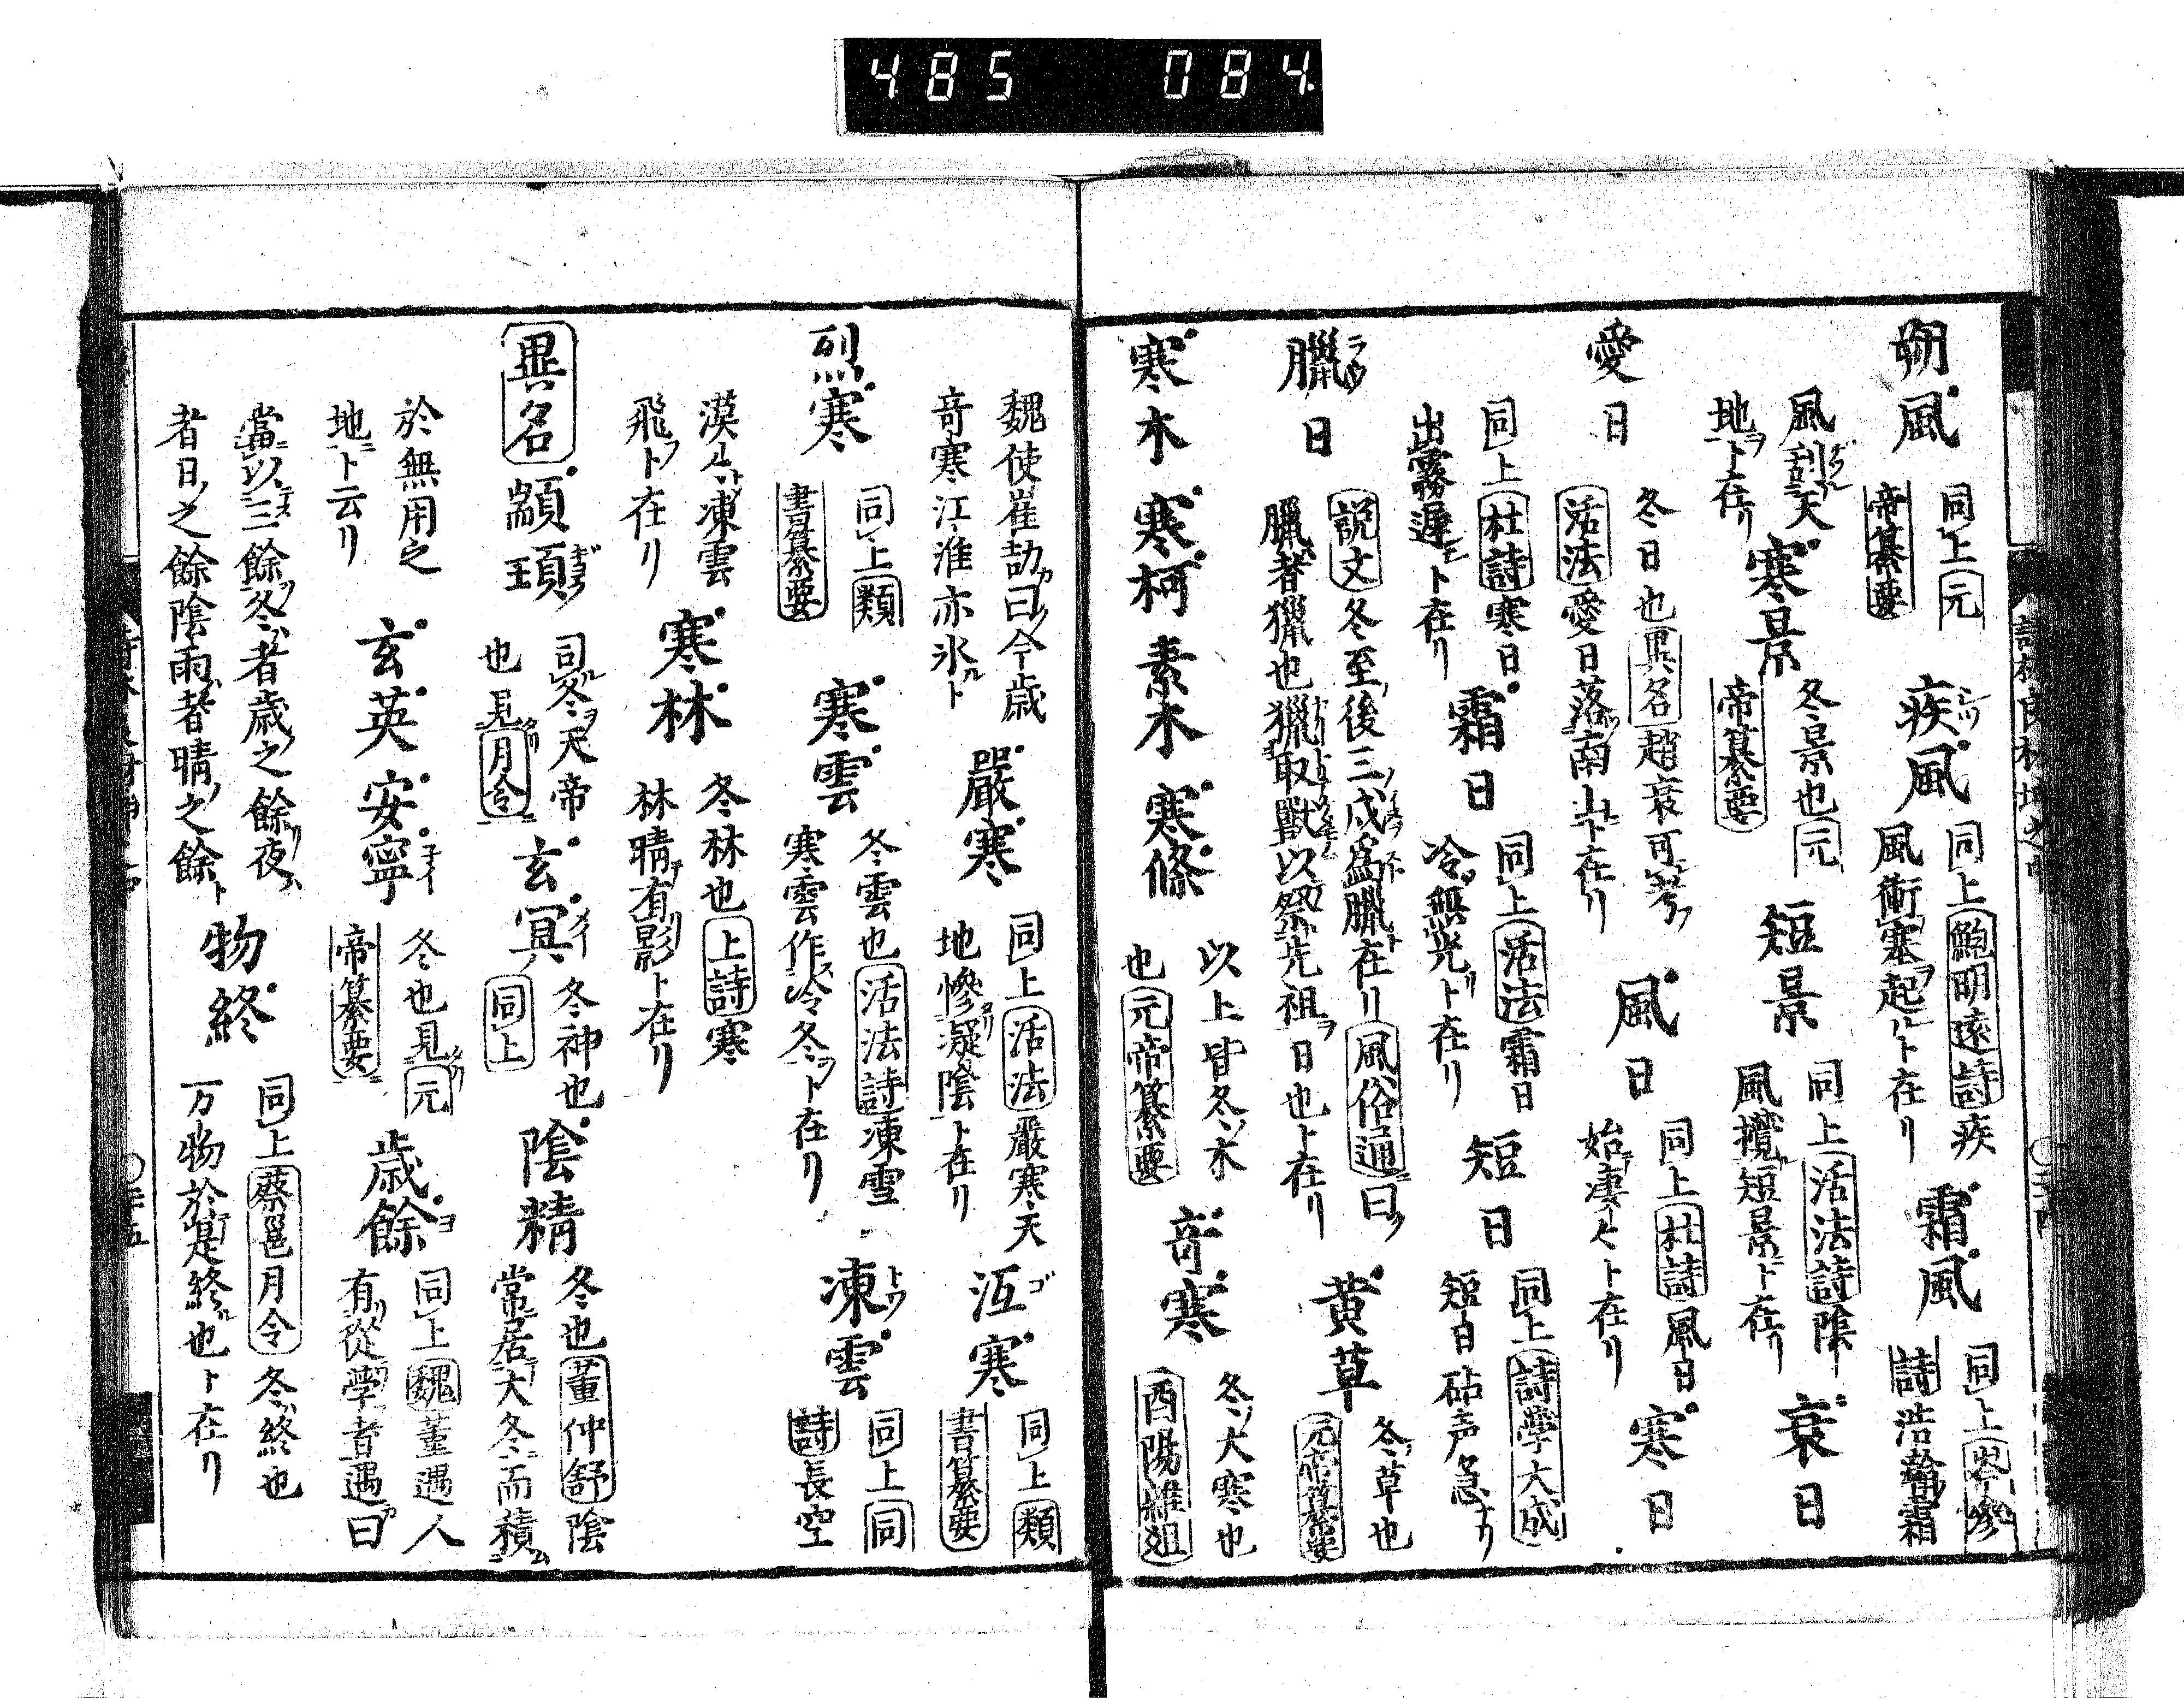 485 084
朔風 同上元帝纂要 疾風 同上鮑明遠詩疾風衝塞起ルト在リ 霜風 同上岑參詩浩翰霜
風刮天地ヲト在リ 寒景 冬景也元帝纂要 短景 同上活法詩陰風攬短景ト在リ 衰日
愛日 冬日也異名趙衰可考フ活法愛日落南山ト在リ 風日 同上杜詩風日始凄々ト在リ 寒日
同上杜詩寒日出霧遅ト在リ 霜日 同上活法霜日冷無光ト在リ 短日 同上詩學大成短日砧声急ナリ
臘日 説文冬至後三戌為臘ト在リ風俗通曰臘者獵也獵取獸以祭先祖ヲ日也ト在リ 黄草 冬草也元帝纂要
寒木 寒柯 素木 寒條 以上皆冬木也元帝纂要 奇寒 冬大寒也酉陽雜俎
魏使崔劼曰今歳奇寒江淮亦氷ルト 嚴寒 同上活法嚴寒天地慘凝陰ト在リ 沍寒 同上類書纂要
烈寒 同上類書纂要 寒雲 冬雲也活法詩凍雪寒雲作冷冬ヲト在リ 凍雲 同上同詩長空
漠々凍雲飛ト在リ 寒林 冬林也上詩寒林晴有影ト在リ
異名 顓頊 司冬ヲ天帝也見月令 玄冥 冬神也同上 陰精 冬也董仲舒陰常居大冬而積
於無用之地ト云リ 玄英 安寧 冬也見元帝纂要 歳餘 同上魏董遇人有從學者遇曰
當以三餘冬者歳之餘夜者日之餘陰雨者晴之餘ト 物終 同上蔡邕月令冬終也万物於是終也ト在リ